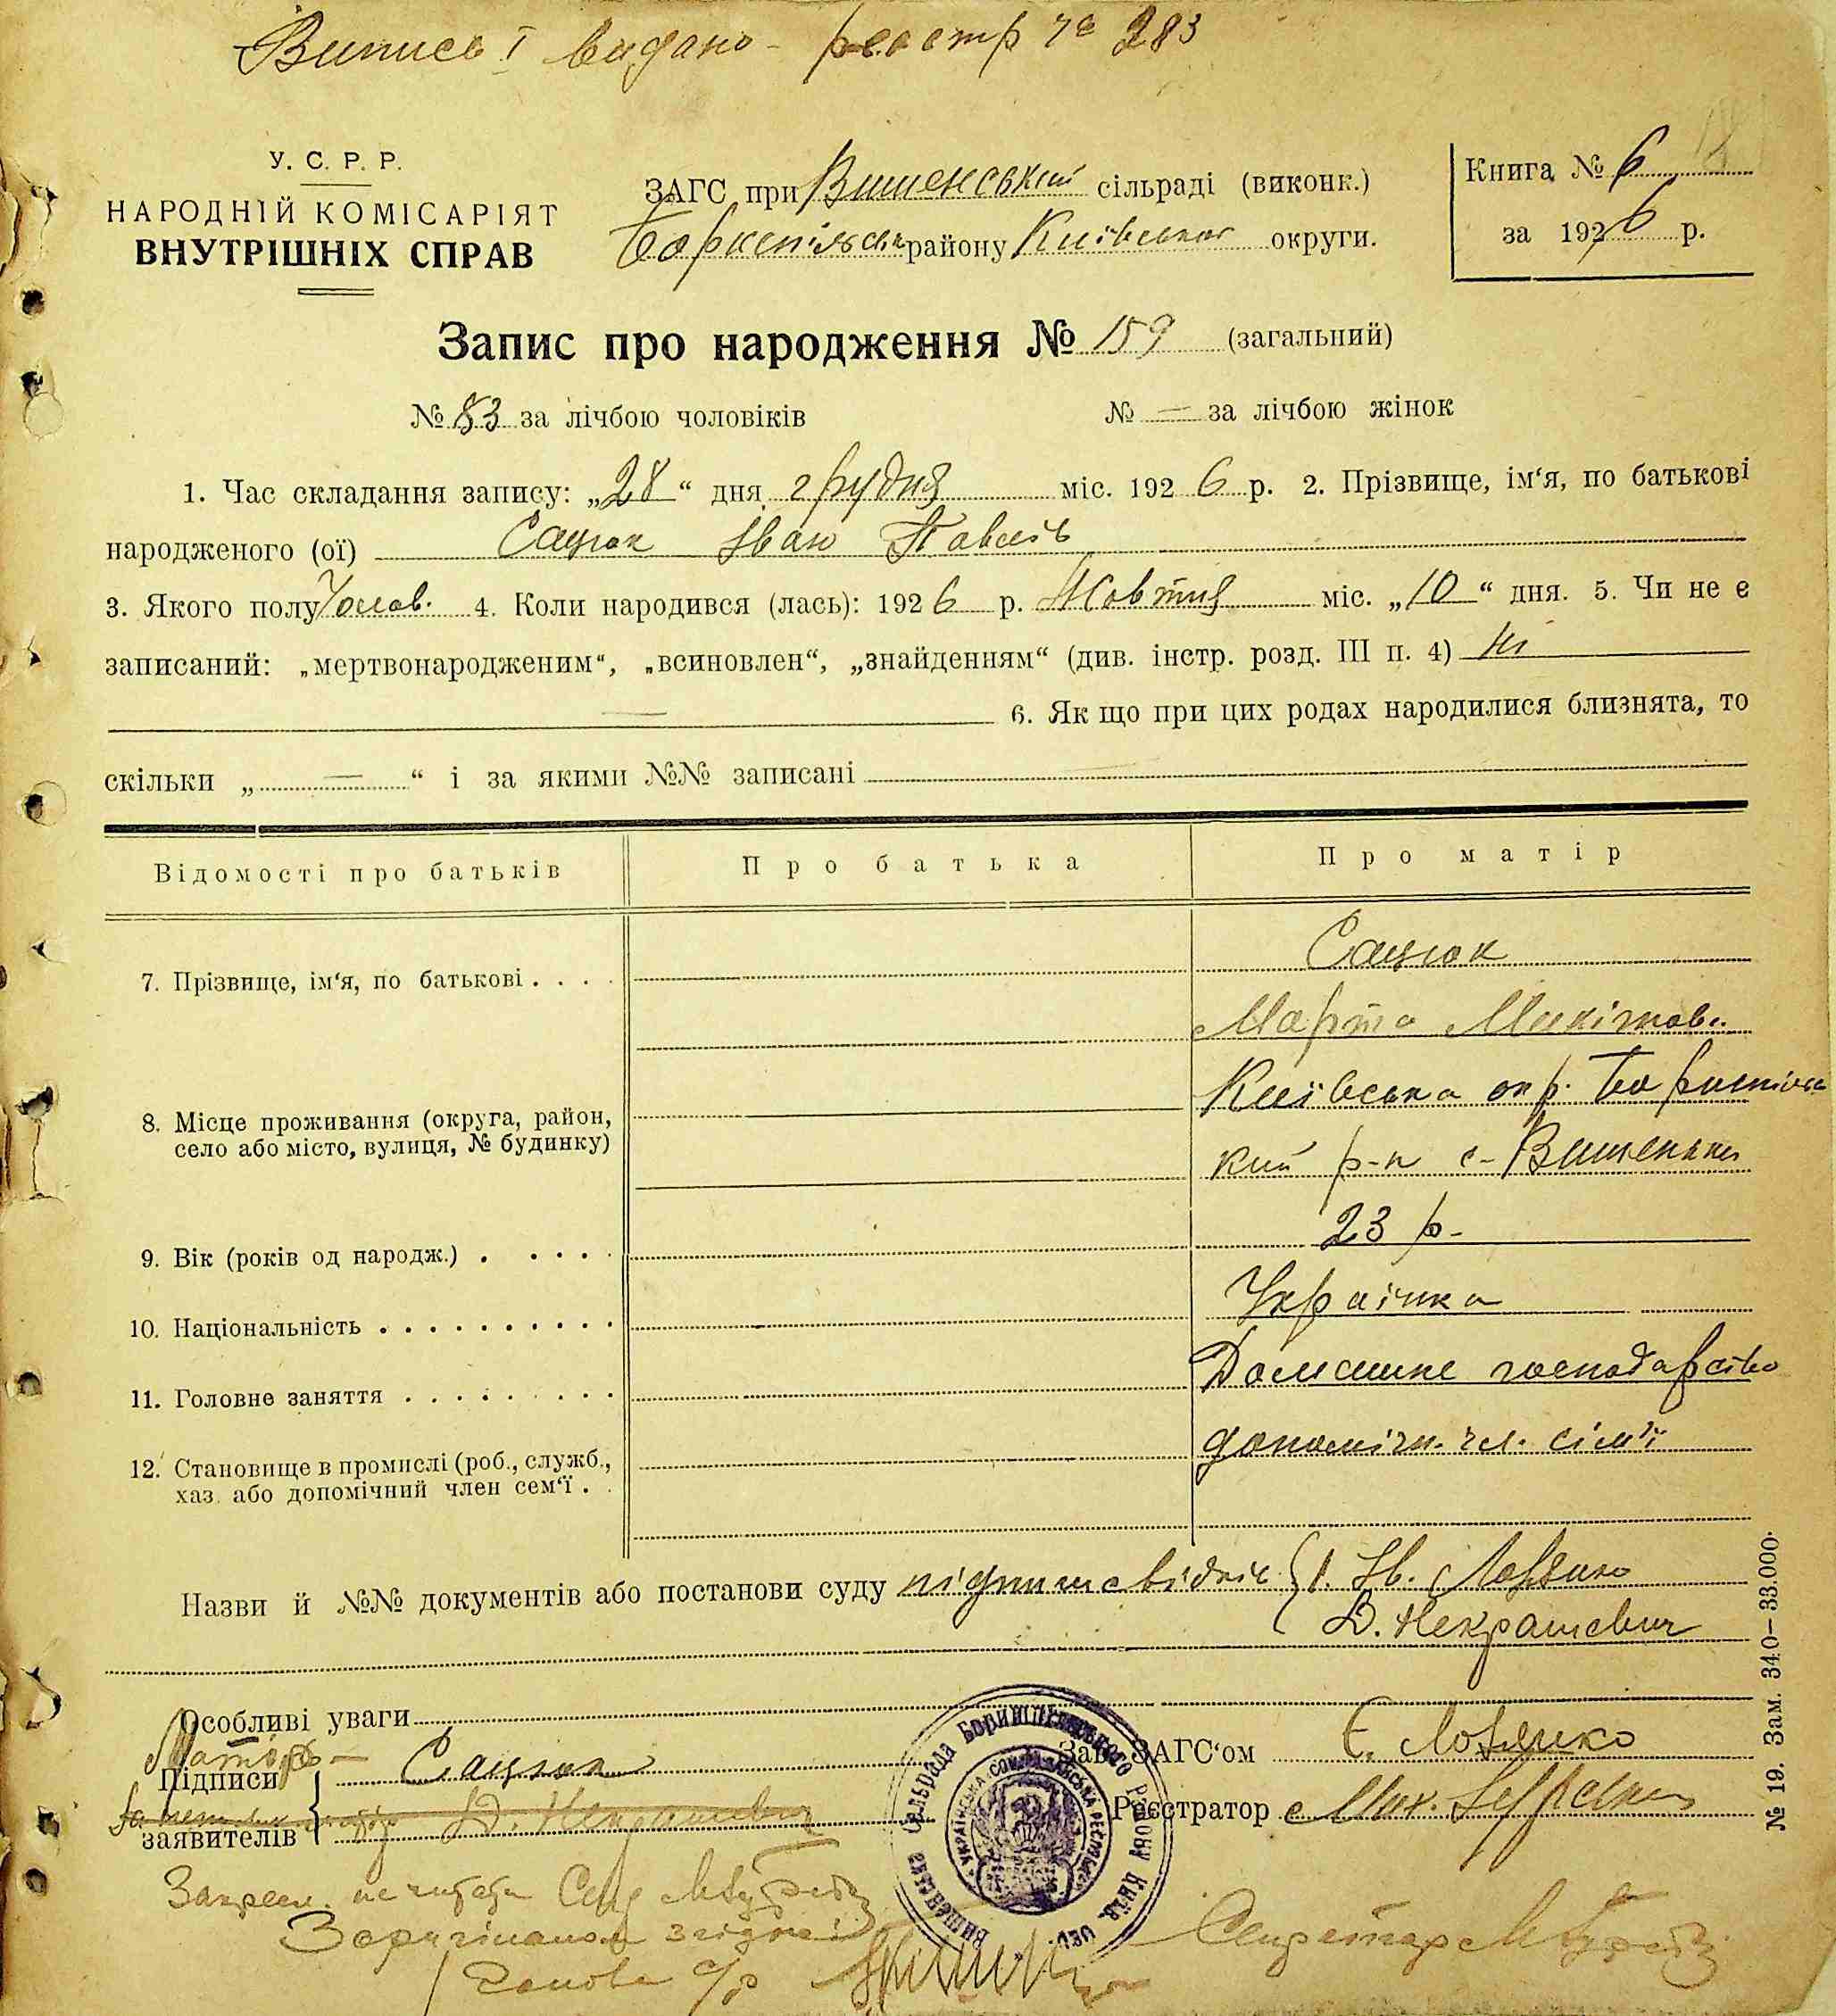 Випись І видано - реєстр № 283
У. С. Р. Р.
НАРОДНІЙ КОМІСАРІЯТ
ВНУТРІШНІХ СПРАВ
ЗАГС при Вишенській сільраді (виконк.)
району Київської округи.
Книга № 6
за 1926 р.
Запис про народження № 159 (загальний)
№ 83 за лічбою чоловіків № — за лічбою жінок
1. Час складання запису: „28“ дня грудня міс. 1926 р. 2. Прізвище, ім‘я, по батькові
народженого (ої) Сацюк Іван Павлів
3. Якого полу Чолов. 4. Коли народився (лась): 1926 р. Жовтня міс. „10“ дня. 5. Чи не є
записаний: „мертвонародженим“, „всиновлен“, „знайденням“ (див. інстр. розд. III п. 4) ні
— 6. Як що при цих родах народилися близнята, то
скільки „ — “ і за якими №№ записані
Відомості про батьків Про батька Про матір
7. Прізвище, ім‘я, по батькові . . . . Сацюк
Марта Микітов.
8. Місце проживання (округа, район,
село або місто, вулиця, № будинку)
Київська окр. Бориспільс
кий р-н с- Вишеньки
9. Вік (років од народж.) . . . . . 23 р.
10. Національність . . . . . . . . . . Українка
11. Головне заняття . . . . . . . . . Домашнє господарство
12. Становище в промислі (роб., служб.,
хаз. або допомічний член сем‘ї . .
допомічн. чл. сім'ї
Назви й №№ документів або постанови суду 1. Ів.
Д. Некрашевич
Особливі уваги
Матір — Сацюк
Підписи
заявителів
Д. Некрашевич
Зав. ЗАГС‘ом Є.
Реєстратор
не читати
З оригіналом згідно
Голова с/р
Секретар
№ 19. Зам. 340—33.000.